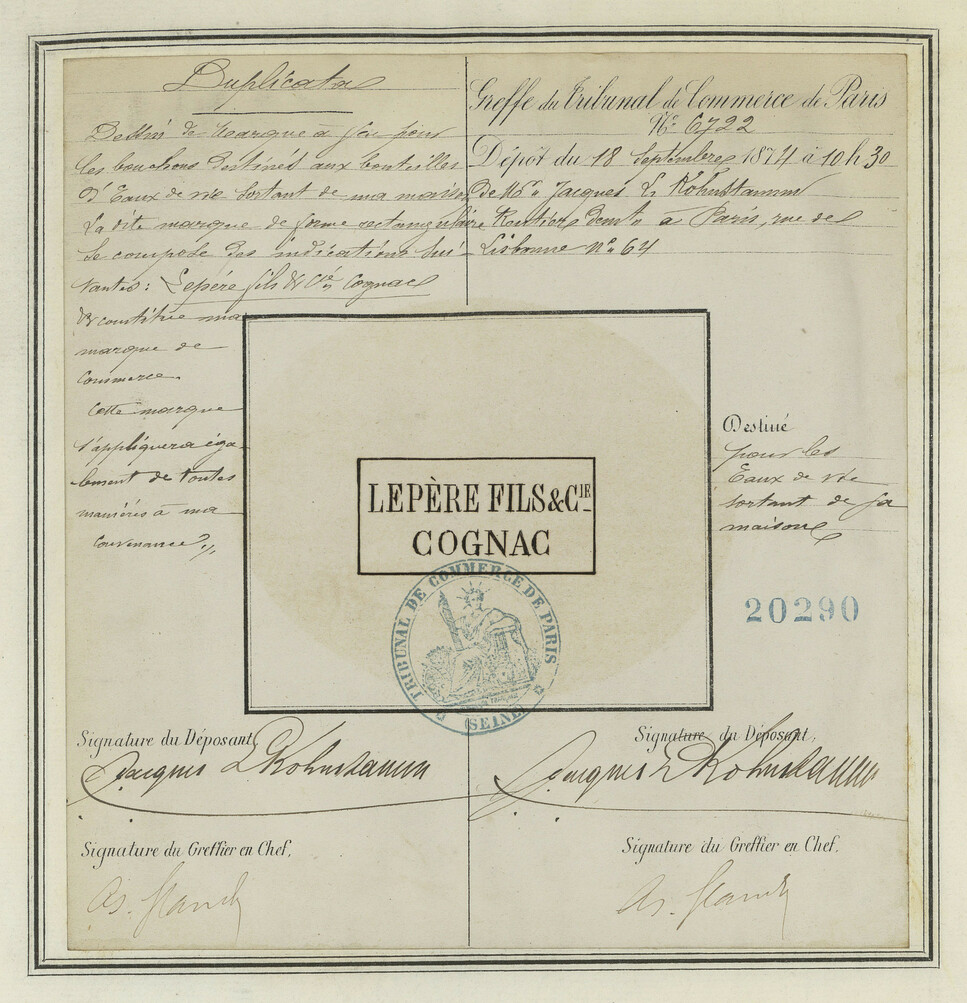 Duplicata
Dessin de Marque à feu pour
les bouchons destinés aux bouteilles
d'Eaux de vie sortant de ma maison
La dite marque de forme rectangulaire
se compose des indications sui-
vantes: Lepère fils & Cie Cognac
& constitue ma
marque de
Commerce.
Cette marque
s'appliquera éga-
lement de toutes
manières à ma
convenance
Greffe du Tribunal de Commerce de Paris
No. 6722
Dépôt du 18 Septembre 1874 à 10 h 30
De Mr. Jacques L. Kohnstamm
Rentier demt. à Paris, rue de
Lisbonne No. 64
LEPÈRE FILS & CIE
COGNAC
TRIBUNAL DE COMMERCE DE PARIS
(SEINE)
Destiné
pour les
Eaux de vie
sortant de sa
maison
20290
Signature du Déposant,
Jacques L Kohnstamm
Signature du Greffier en Chef,
Signature du Déposant,
Jacques L Kohnstamm
Signature du Greffier en Chef.